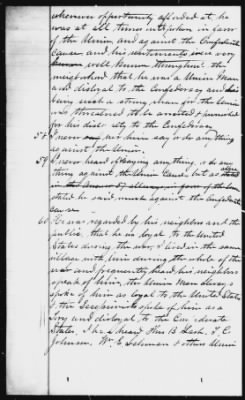 whenever opportunity afforded at, he
was at all times outspoken in favor
of the Union and against the Confederate
cause and his sentiments was very
well known throughout the
neighborhood that he was a Union Man
and disloyal to the Confederacy and his
being such a strong man for the Union
was threatened to be arrested & punished
for his disloyalty to the Confederacy
58 I never saw nor him say or do any thing
against the Union.
59 I never heard of saying anything, or do any
thing against the Union Cause but as
stated he said much against the Confederate
cause
60 He was regarded by his neighbors and the
public that he was loyal to the United
States during the war, I lived in the same
village with him during the whole of the
war and frequently heard his neighbors
speak of him, the Union Man always
spoke of him as loyal to the United States
& the Secessionists spoke of him as a
Tory and disloyal to the Confederate
States, I have heard Thos B Lash, T. C.
Johnson, Wm E Lehman & others Union